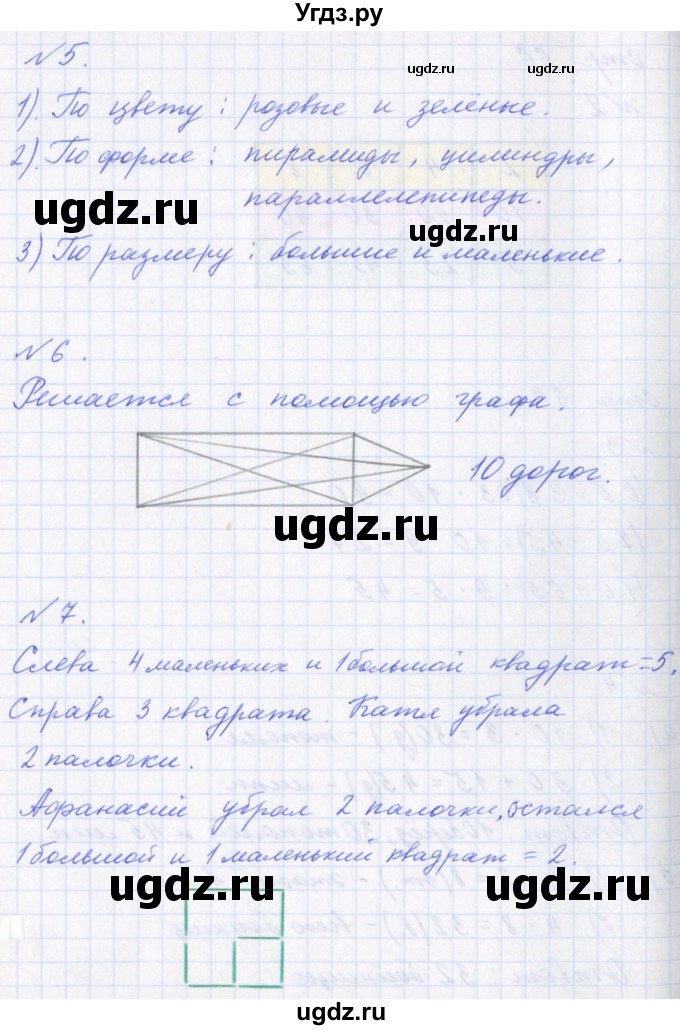 Угдз.ру
№5.
ugdz.ru
ugdz.ru
1). По цвету: розовые и зелёные.
2). По форме: пирамиды, цилиндры,
параллелепипеды.
ugdz.ru
ugdz.ru
3) По размеру: большие и маленькие.
№6.
Решается с помощью графа.
10 дорог.
ugdz.ru
№7.
Слева - 4 маленьких и 1 большой квадрат = 5,
Справа 3 квадрата. Катя убрала
2 палочки.
Афанасий убрал 2 палочки, остался
1 большой и 1 маленький квадрат = 2.
ugdz.ru
ugdz.ru
ugdz.ru